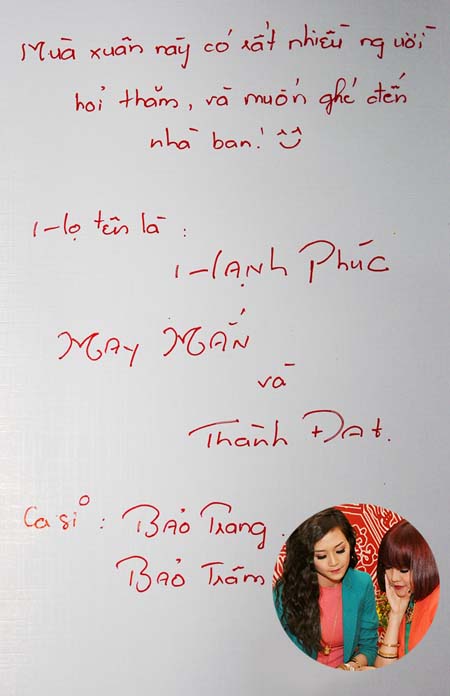 Mùa xuân này có rất nhiều người
hỏi thăm, và muốn ghé đến
nhà bạn!
Họ tên là :
HẠNH PHÚC
MAY MẮN
và
Thành ĐẠt.
Ca sĩ : BẢO Trang.
BẢO Trâm